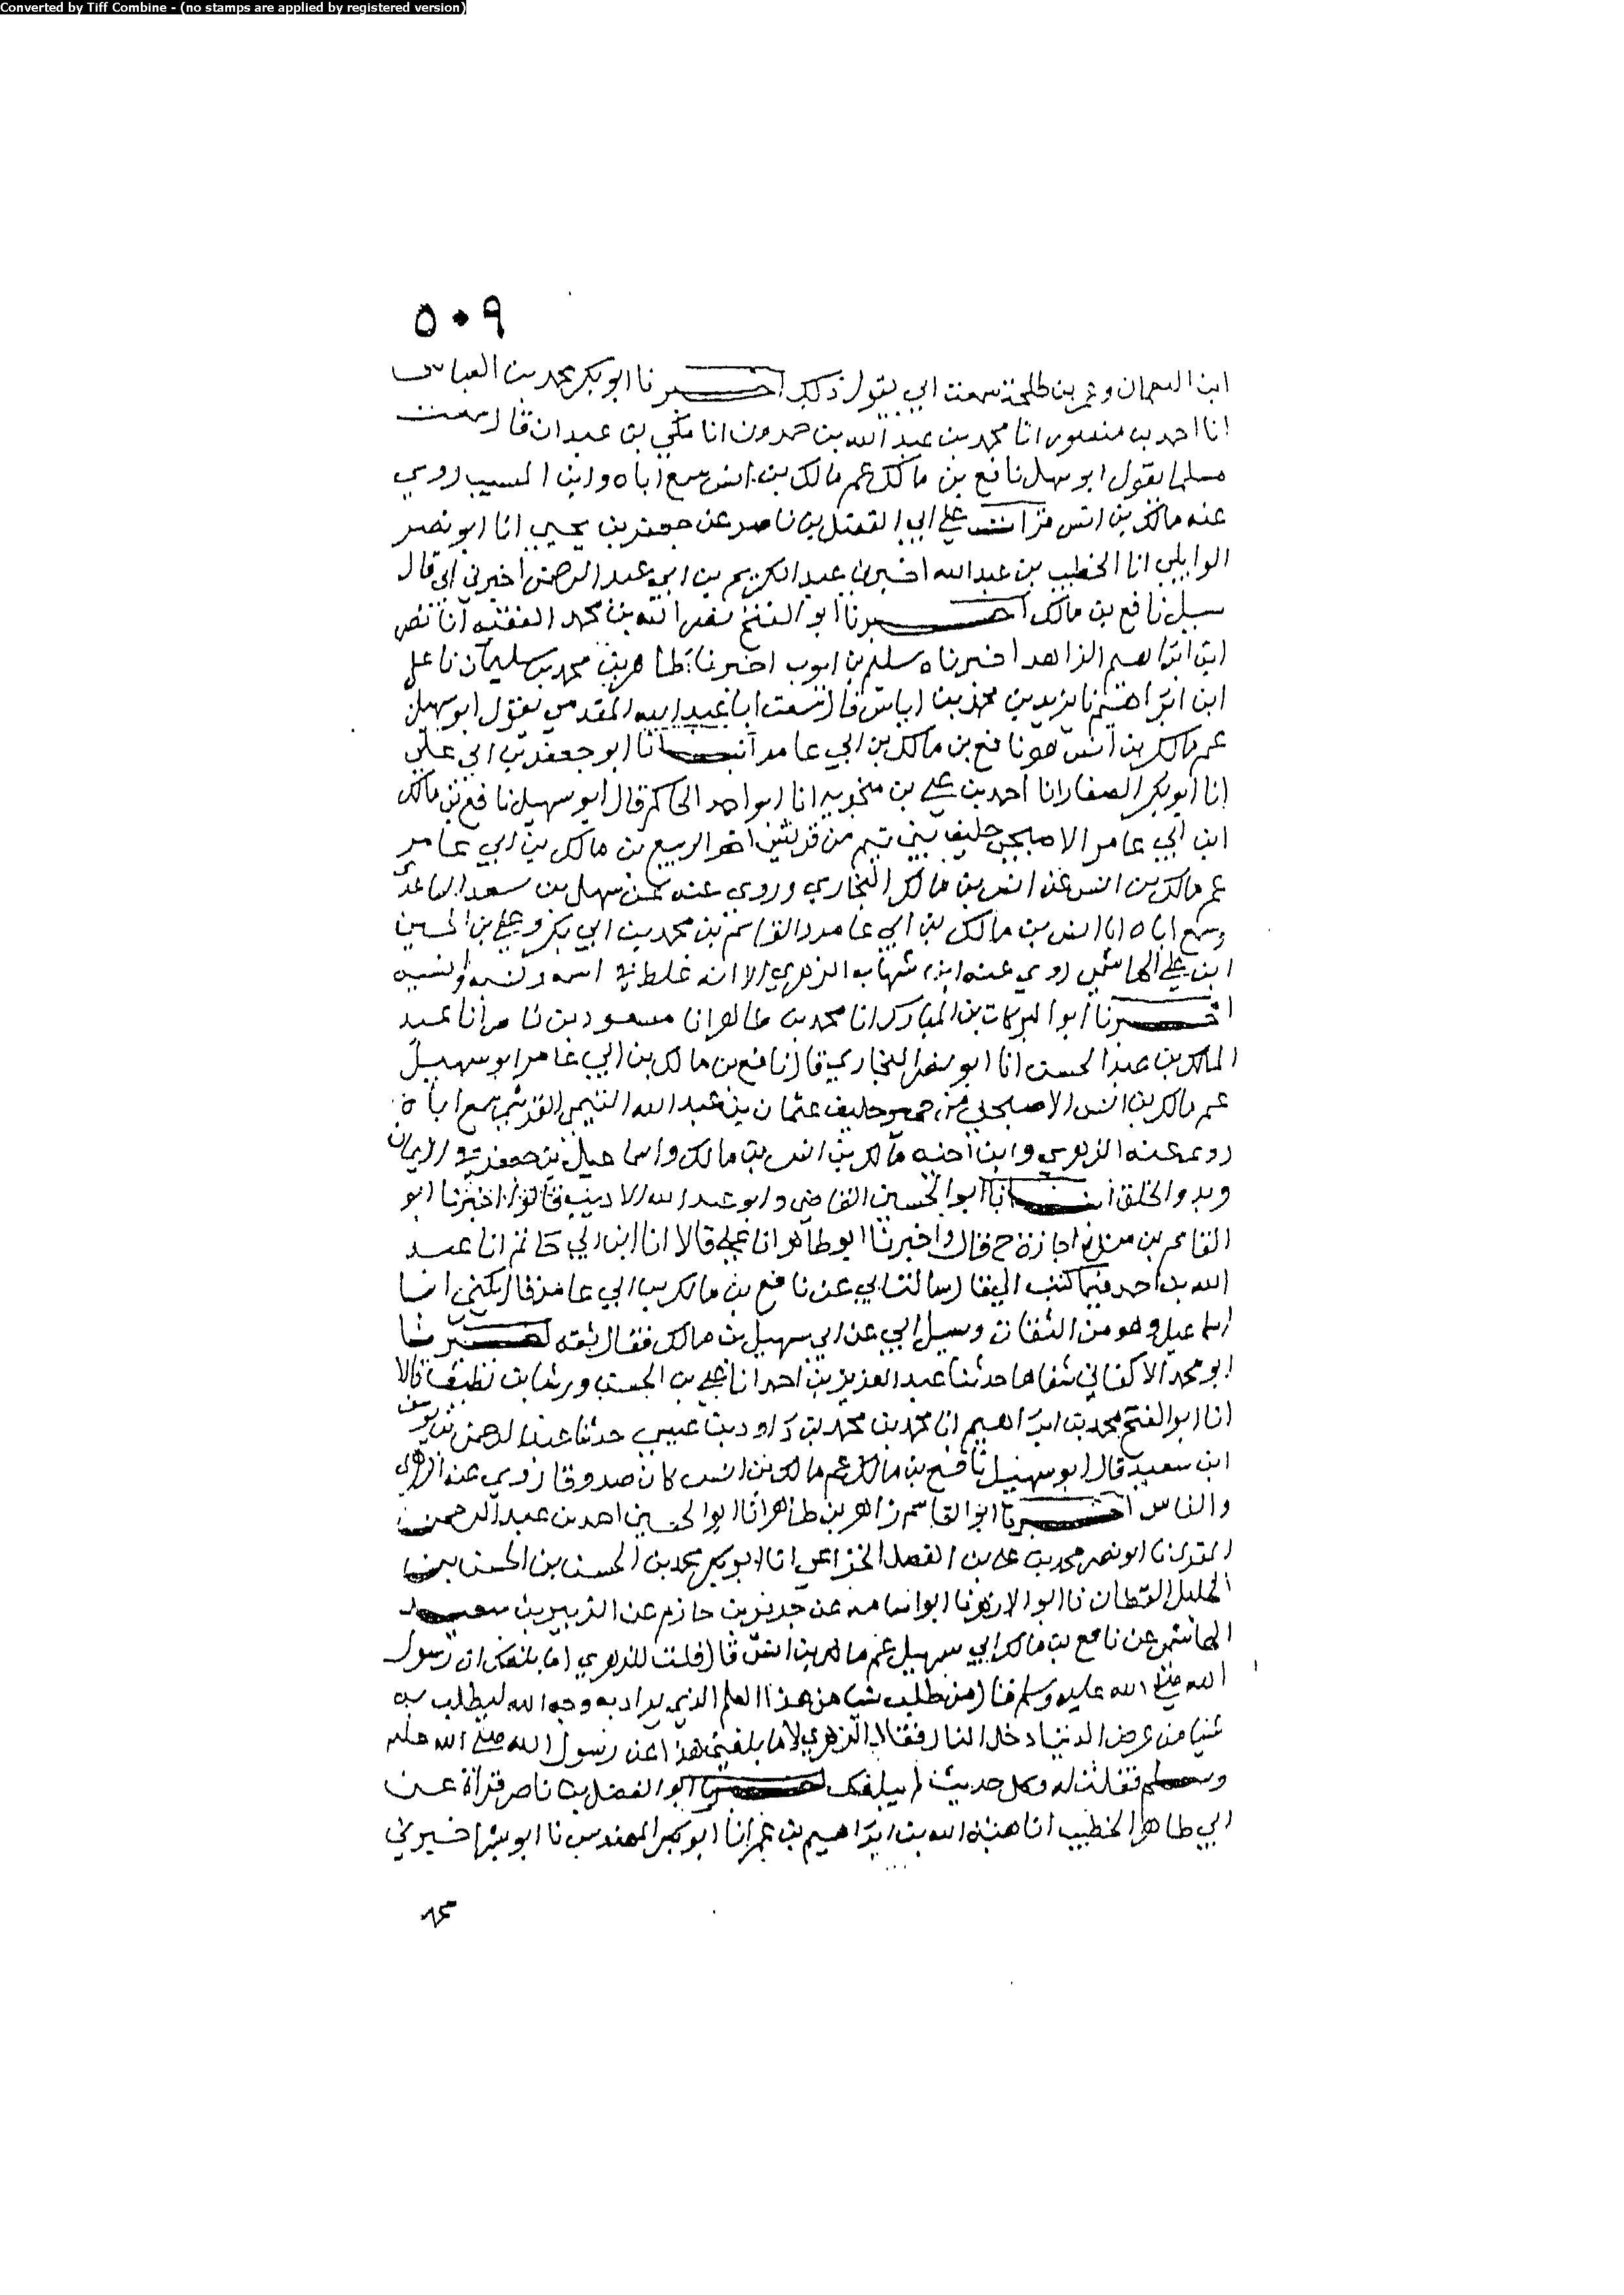 Converted by Tiff Combine - (no stamps are applied by registered version)
٥٠٩
ابن النعمان وعمر بن طلحة سمعت ابي يقول ذلك اخبرنا ابو بكر محمد بن العباس
انا احمد بن منصور انا محمد بن عبد الله بن حمدون انا مكي بن عبدان قال سمعت
مسلما يقول ابو سهل نافع بن مالك عم مالك بن انس سمع اباه وابن المسيب روي
عنه مالك بن انس قرات علي ابي الفضل بن ناصر عن جعفر بن يحيي انا ابو نصر
الوايلي انا الخطيب بن عبد الله اخبرني عبد الكريم بن ابي عبد الرحمن اخبرني ابي قال
سهيل نافع بن مالك اخبرنا ابو الفتح نصر الله بن محمد الفقيه انا نصر
ابن ابراهيم الزاهد اخبرنا سليم بن ايوب اخبرنا طاهر بن محمد بن سليمان نا علي
ابن ابراهيم نا يزيد بن محمد بن اياس قال سمعت ابا عبد الله المقدمي يقول ابو سهيل
عم مالك بن انس هو نافع بن مالك بن ابي عامر انبانا ابو جعفر بن ابي علي
انا ابو بكر الصفار انا احمد بن علي بن منجويه انا ابو احمد الحاكم قال ابو سهيل نافع بن مالك
ابن ابي عامر الاصبحي حليف بني تيم من قريش اخو الربيع بن مالك بن ابي عامر
عم مالك بن انس عن انس بن مالك النجاري وروي عنه عن سهل بن سعد الساعدي
وسمع اباه ابا انس بن مالك بن ابي عامر والقاسم بن محمد بن ابي بكر وعلي بن الحسين
ابن علي الهاشمي روي عنه ابن شهاب الزهري الا انه غلط في اسمه وكنيته ونسبه
اخبرنا ابو البركات بن المبارك انا محمد بن طاهر انا مسعود بن ناصر انا عبد
الملك بن عبد الحسن انا ابو نصر البخاري قال نافع بن مالك بن ابي عامر ابو سهيل
عم مالك بن انس الاصبحي من حمير حليف عثمان بن عبيد الله التيمي القرشي سمع اباه
روي عنه الزهري وابن اخيه مالك بن انس بن مالك واسماعيل بن جعفر في الايمان
وبدو الخلق انبانا ابو الحسين القاضي وابو عبد الله الاديب قالوا اخبرنا ابو
القاسم بن منده اجازة ح قال واخبرنا ابو طاهر انا علي قالا انا ابن ابي حاتم انا عبد
الله بن احمد فيما كتب الي قال سالت ابي عن نافع بن مالك بن ابي عامر قال يكني ابا
سهيل وهو من الثقات وسيل ابي عن ابي سهيل بن مالك فقال ثقه اخبرنا
ابو محمد الاكفاني شفاها حدثنا عبد العزيز بن احمد انا علي بن الحسن ورشا بن نظيف قالا
انا ابو الفتح محمد بن ابراهيم انا محمد بن محمد بن داود بن عيسي حدثنا عبد الرحمن بن يوسف
ابن سعيد قال ابو سهيل نافع بن مالك عم مالك بن انس كان صدوقا روي عنه الزهري
والناس اخبرنا ابو القاسم زاهر بن طاهر انا ابو الحسين احمد بن عبد الرحمن
انا ابو نصر محمد بن علي بن الفضل الخزاعي انا ابو بكر محمد بن الحسن بن الحسن بن
الخليل القطان نا ابو الازهر نا ابو اسامه عن جرير بن حازم عن الزبير بن سعيد
الهاشمي عن نافع بن مالك ابي سهيل عم مالك بن انس قال قلت للزهري اما بلغك ان رسول
الله صلي الله عليه وسلم قال من طلب شيا من هذا العلم الذي يراد به وجه الله ليطلب به
شيا من عرض الدنيا دخل النار فقال الزهري لا ما بلغني هذا عن رسول الله صلي الله عليه
وسلم فقلت له وكل حديث لم يبلغك اخبرنا ابو الفضل بن ناصر قراة عن
ابي طاهر الخطيب انا هبة الله بن ابراهيم بن عمر انا ابو بكر المهندس نا ابو بشر اخبرني